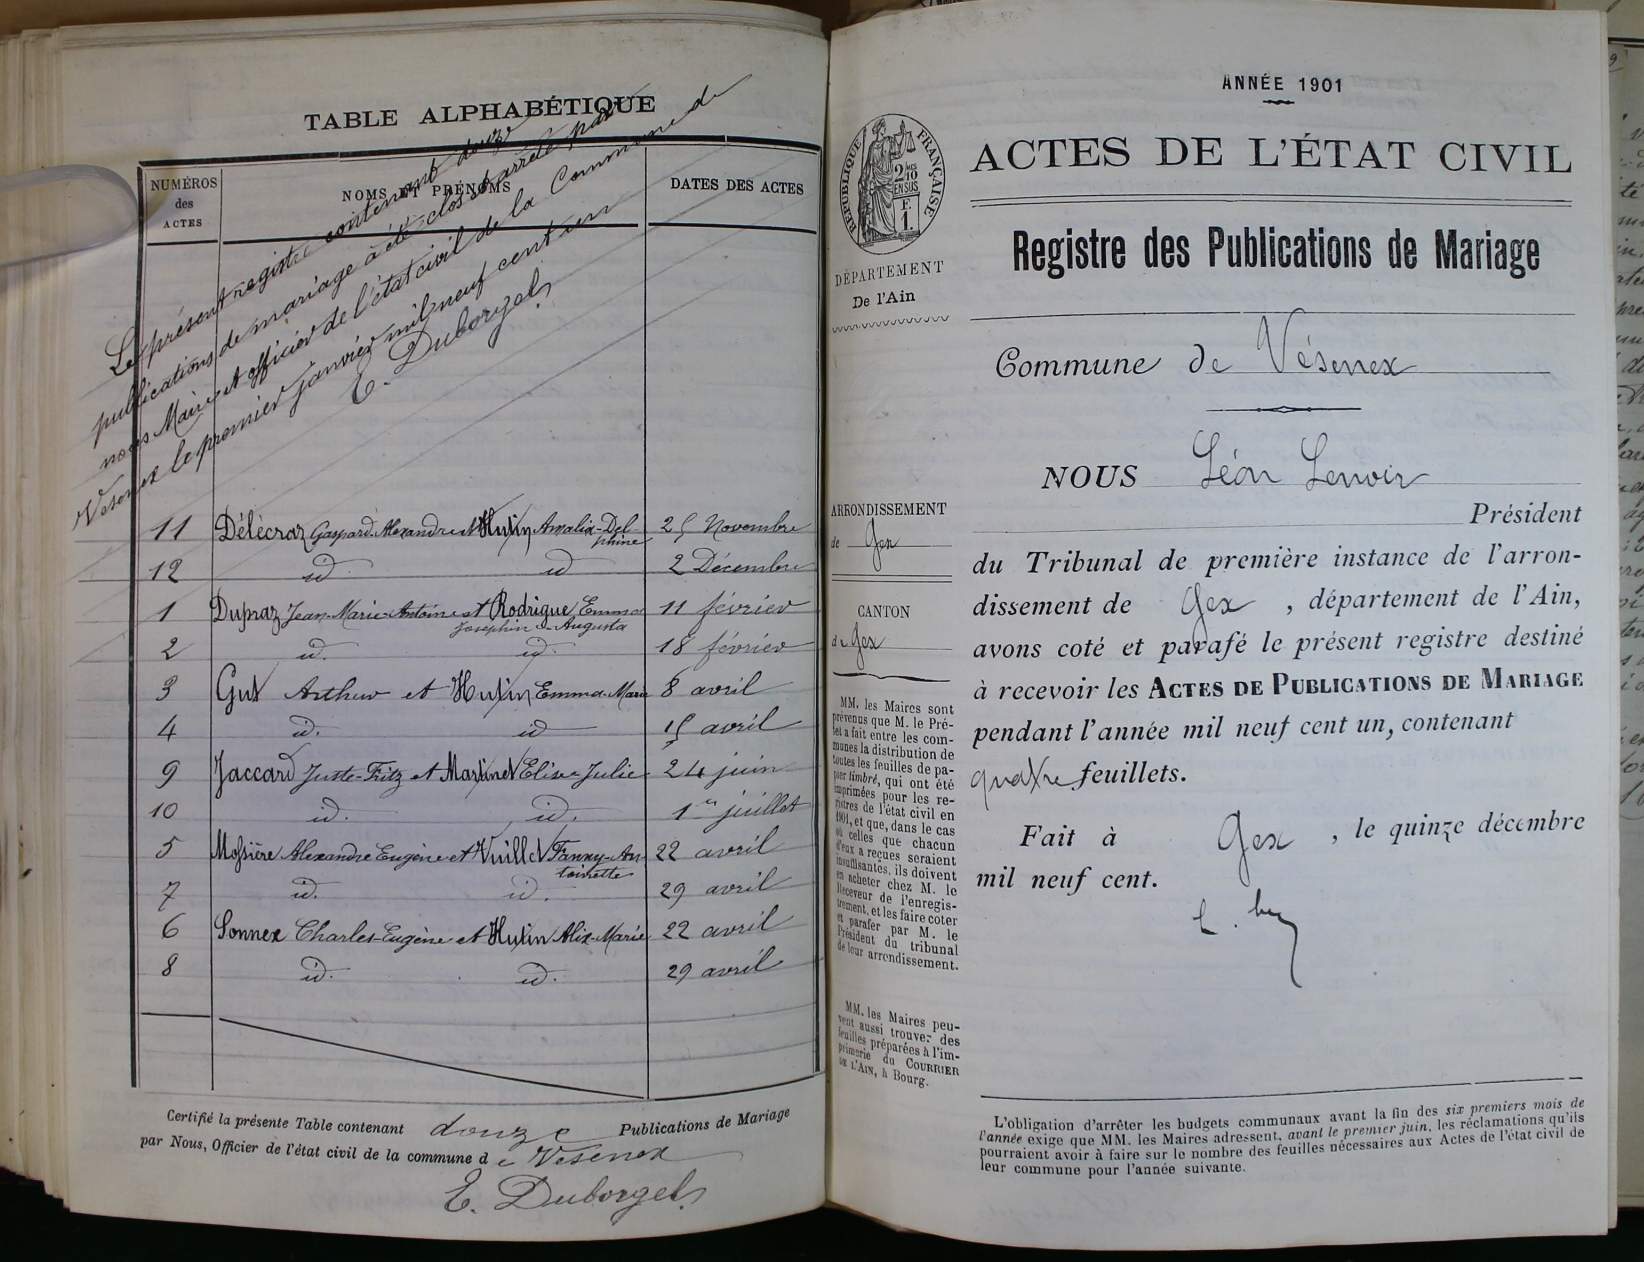 TABLE ALPHABÉTIQUE
NUMÉROS des ACTES
NOMS ET PRÉNOMS
DATES DES ACTES
Le présent registre contenant douze
publications de mariage a été clos et arrêté par
nous Maire et officier de l'état civil de la Commune de
Vesenex le premier janvier mil neuf cent un
E. Duborgel
11 Délécraz Gaspard-Alexandre et Hutin Amalia-Delphine 25 Novembre
12 id id 2 Décembre
1 Dupraz Jean-Marie-Antoine et Rodrigue Emma Joséphine-Augusta 11 février
2 id. id. 18 février
3 Gut Arthur et Hutin Emma-Marie 8 avril
4 id. id 15 avril
9 Jaccard Juste-Fritz et Martinet Elise-Julie 24 juin
10 id. id. 1er juillet
5 Mossière Alexandre Eugène et Vuillet Fanny-Antoinette 22 avril
7 id. id. 29 avril
6 Sonnex Charles-Eugène et Hutin Alix-Marie 22 avril
8 id. id. 29 avril
Certifié la présente Table contenant douze Publications de Mariage
par Nous, Officier de l'état civil de la commune de Vesenex
E. Duborgel
ANNÉE 1901
ACTES DE L'ÉTAT CIVIL
RÉPUBLIQUE FRANÇAISE
2/10 EN SUS
F. 1.
DÉPARTEMENT
De l'Ain
Registre des Publications de Mariage
Commune de Vésenex
NOUS Léon Lenoir
Président
du Tribunal de première instance de l'arron-
dissement de Gex, département de l'Ain,
avons coté et parafé le présent registre destiné
à recevoir les ACTES DE PUBLICATIONS DE MARIAGE
pendant l'année mil neuf cent un, contenant
quatre feuillets.
Fait à Gex, le quinze décembre
mil neuf cent.
ARRONDISSEMENT
de Gex
CANTON
de Gex
MM. les Maires sont
prévenus que M. le Pré-
fet a fait entre les com-
munes la distribution de
toutes les feuilles de pa-
pier timbré, qui ont été
imprimées pour les re-
gistres de l'état civil en
1901, et que, dans le cas
où celles que chacun
d'eux a reçues seraient
insuffisantes, ils doivent
en acheter chez M. le
Receveur de l'enregis-
trement, et les faire coter
et parafer par M. le
Président du tribunal
de leur arrondissement.
MM. les Maires peu-
vent aussi trouver des
feuilles préparées à l'im-
primerie du COURRIER
DE L'AIN, à Bourg.
L'obligation d'arrêter les budgets communaux avant la fin des six premiers mois de
l'année exige que MM. les Maires adressent, avant le premier juin, les réclamations qu'ils
pourraient avoir à faire sur le nombre des feuilles nécessaires aux Actes de l'état civil de
leur commune pour l'année suivante.